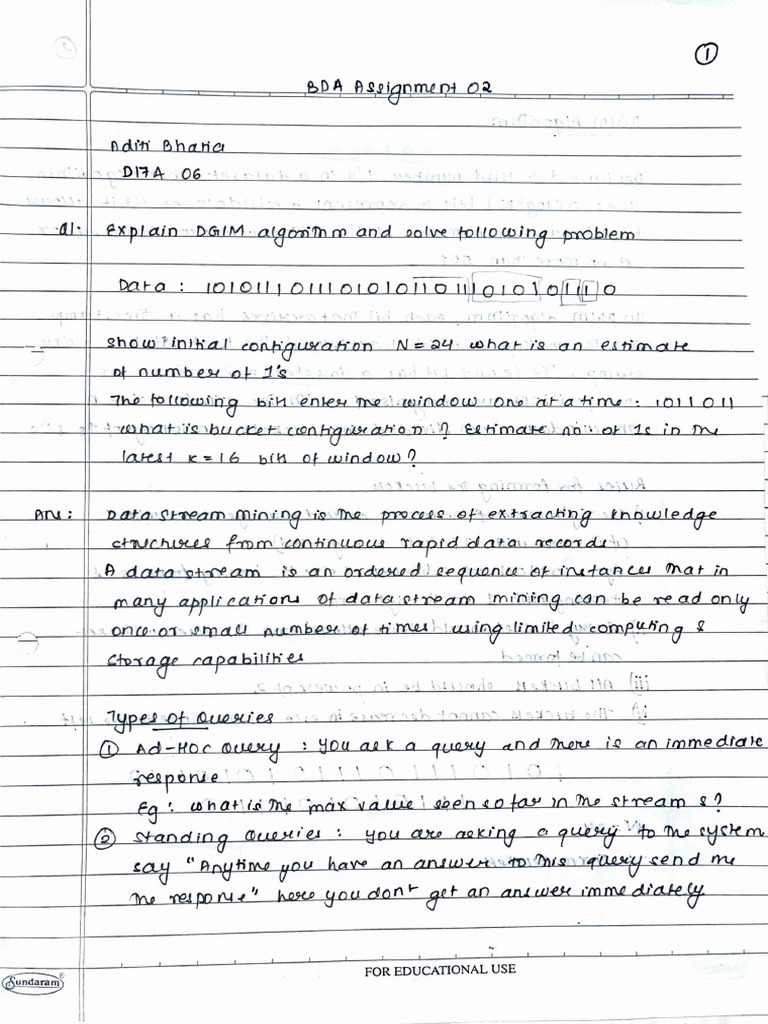 1
BDA Assignment 02
Aditi Bhatia
D17A 06
Q1: Explain DGIM algorithm and solve following problem
Data : 1010111011101010110111010101110
show initial configuration N=24 what is an estimate
of number of 1's
The following bits enter the window one at a time : 1011011
what is bucket configuration? Estimate no. of 1s in the
latest k=16 bits of window?
Ans: Data stream mining is the process of extracting knowledge
structures from continuous rapid data records.
A data stream is an ordered sequence of instances that in
many applications of data stream mining can be read only
once or small number of times using limited computing &
storage capabilities
Types of Queries
1 Ad-Hoc Query : You ask a query and there is an immediate
response
Eg: what is the max value seen so far in the stream s?
2 Standing Queries : you are asking a query to the system
say "Anytime you have an answer to this query send me
the response" here you dont get an answer immediately.
Sundaram®
FOR EDUCATIONAL USE